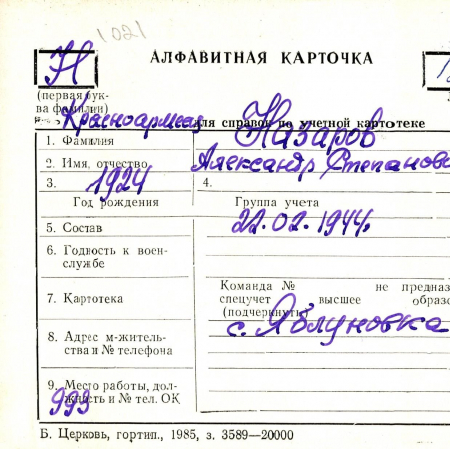 1021
АЛФАВИТНАЯ КАРТОЧКА
Н
(первая бук-
ва фамилии)
Красноармеец для справок по учетной картотеке
1. Фамилия Назаров
2. Имя, отчество Александр Степанови
3. 1924 4.
Год рождения Группа учета
5. Состав 22.02.1944
6. Годность к воен-
службе
Команда № не предназ
7. Картотека спецучет, высшее образо
(подчеркнуть)
с. Яблуновка
8. Адрес м-житель-
ства и № телефона
9. Место работы, дол-
жность и № тел. ОК
993
Б. Церковь, гортип., 1985, з. 3589—20000